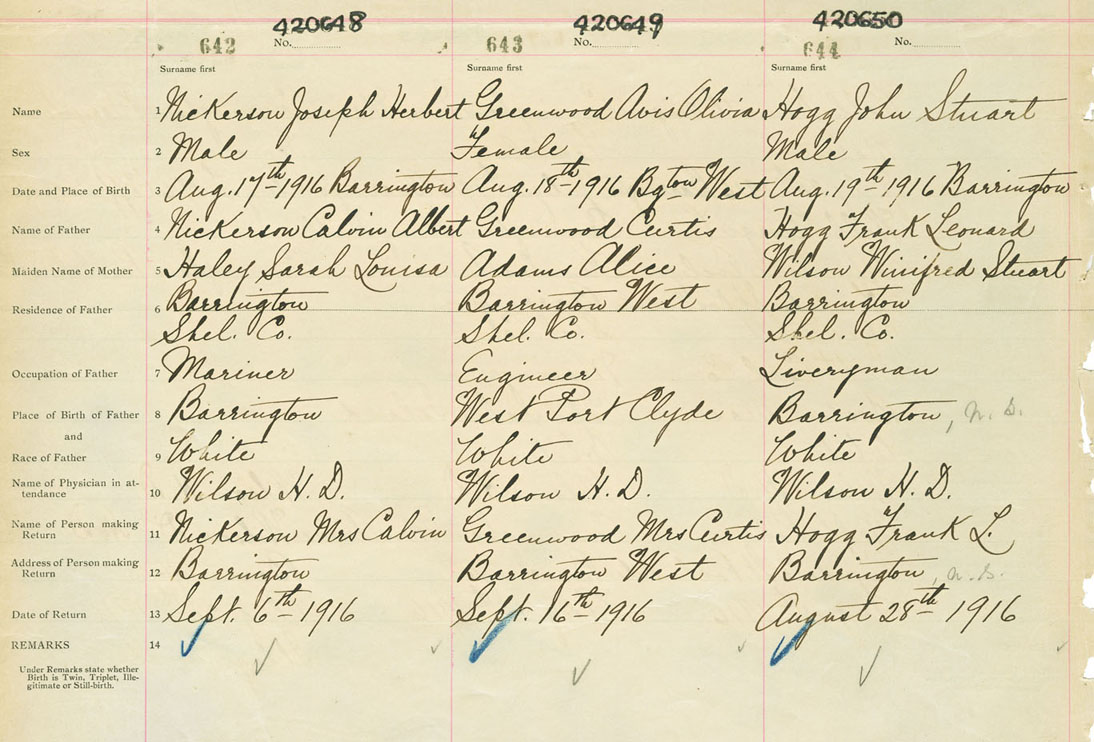 420648 420649 420650
642 No. 643 No. 644 No.
Surname first Surname first Surname first
Name 1 Nickerson Joseph Herbert Greenwood Avis Olivia Hogg John Stuart
Sex 2 Male Female Male
Date and Place of Birth 3 Aug. 17th 1916 Barrington Aug. 18th 1916 Bgton West Aug. 19th 1916 Barrington
Name of Father 4 Nickerson Calvin Albert Greenwood Curtis Hogg Frank Leonard
Maiden Name of Mother 5 Haley Sarah Louisa Adams Alice Wilson Winifred Stuart
Residence of Father 6 Barrington Barrington West Barrington
Shel. Co. Shel. Co. Shel. Co.
Occupation of Father 7 Mariner Engineer Liveryman
Place of Birth of Father 8 Barrington West Port Clyde Barrington, N.S.
and
Race of Father 9 White White White
Name of Physician in at-
tendance 10 Wilson H. D. Wilson H. D. Wilson H. D.
Name of Person making
Return 11 Nickerson Mrs Calvin Greenwood Mrs Curtis Hogg Frank L.
Address of Person making
Return 12 Barrington Barrington West Barrington, N.S.
Date of Return 13 Sept. 6th 1916 Sept. 16th 1916 August 28th 1916
REMARKS 14
Under Remarks state whether
Birth is Twin, Triplet, Ille-
gitimate or Still-birth.